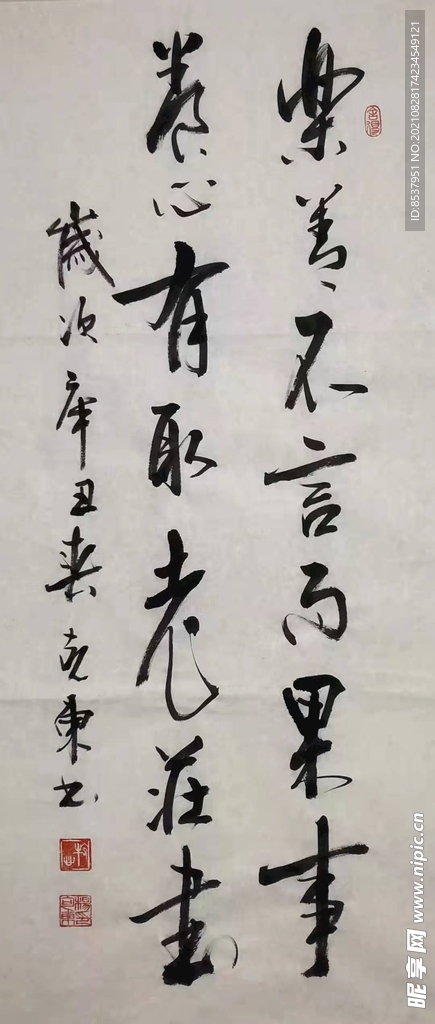 樂善不言因果事
養心有取老莊書
歲次辛丑春克東书
ID:8537951 NO:20210828174234549121
昵享网 www.nipic.cn